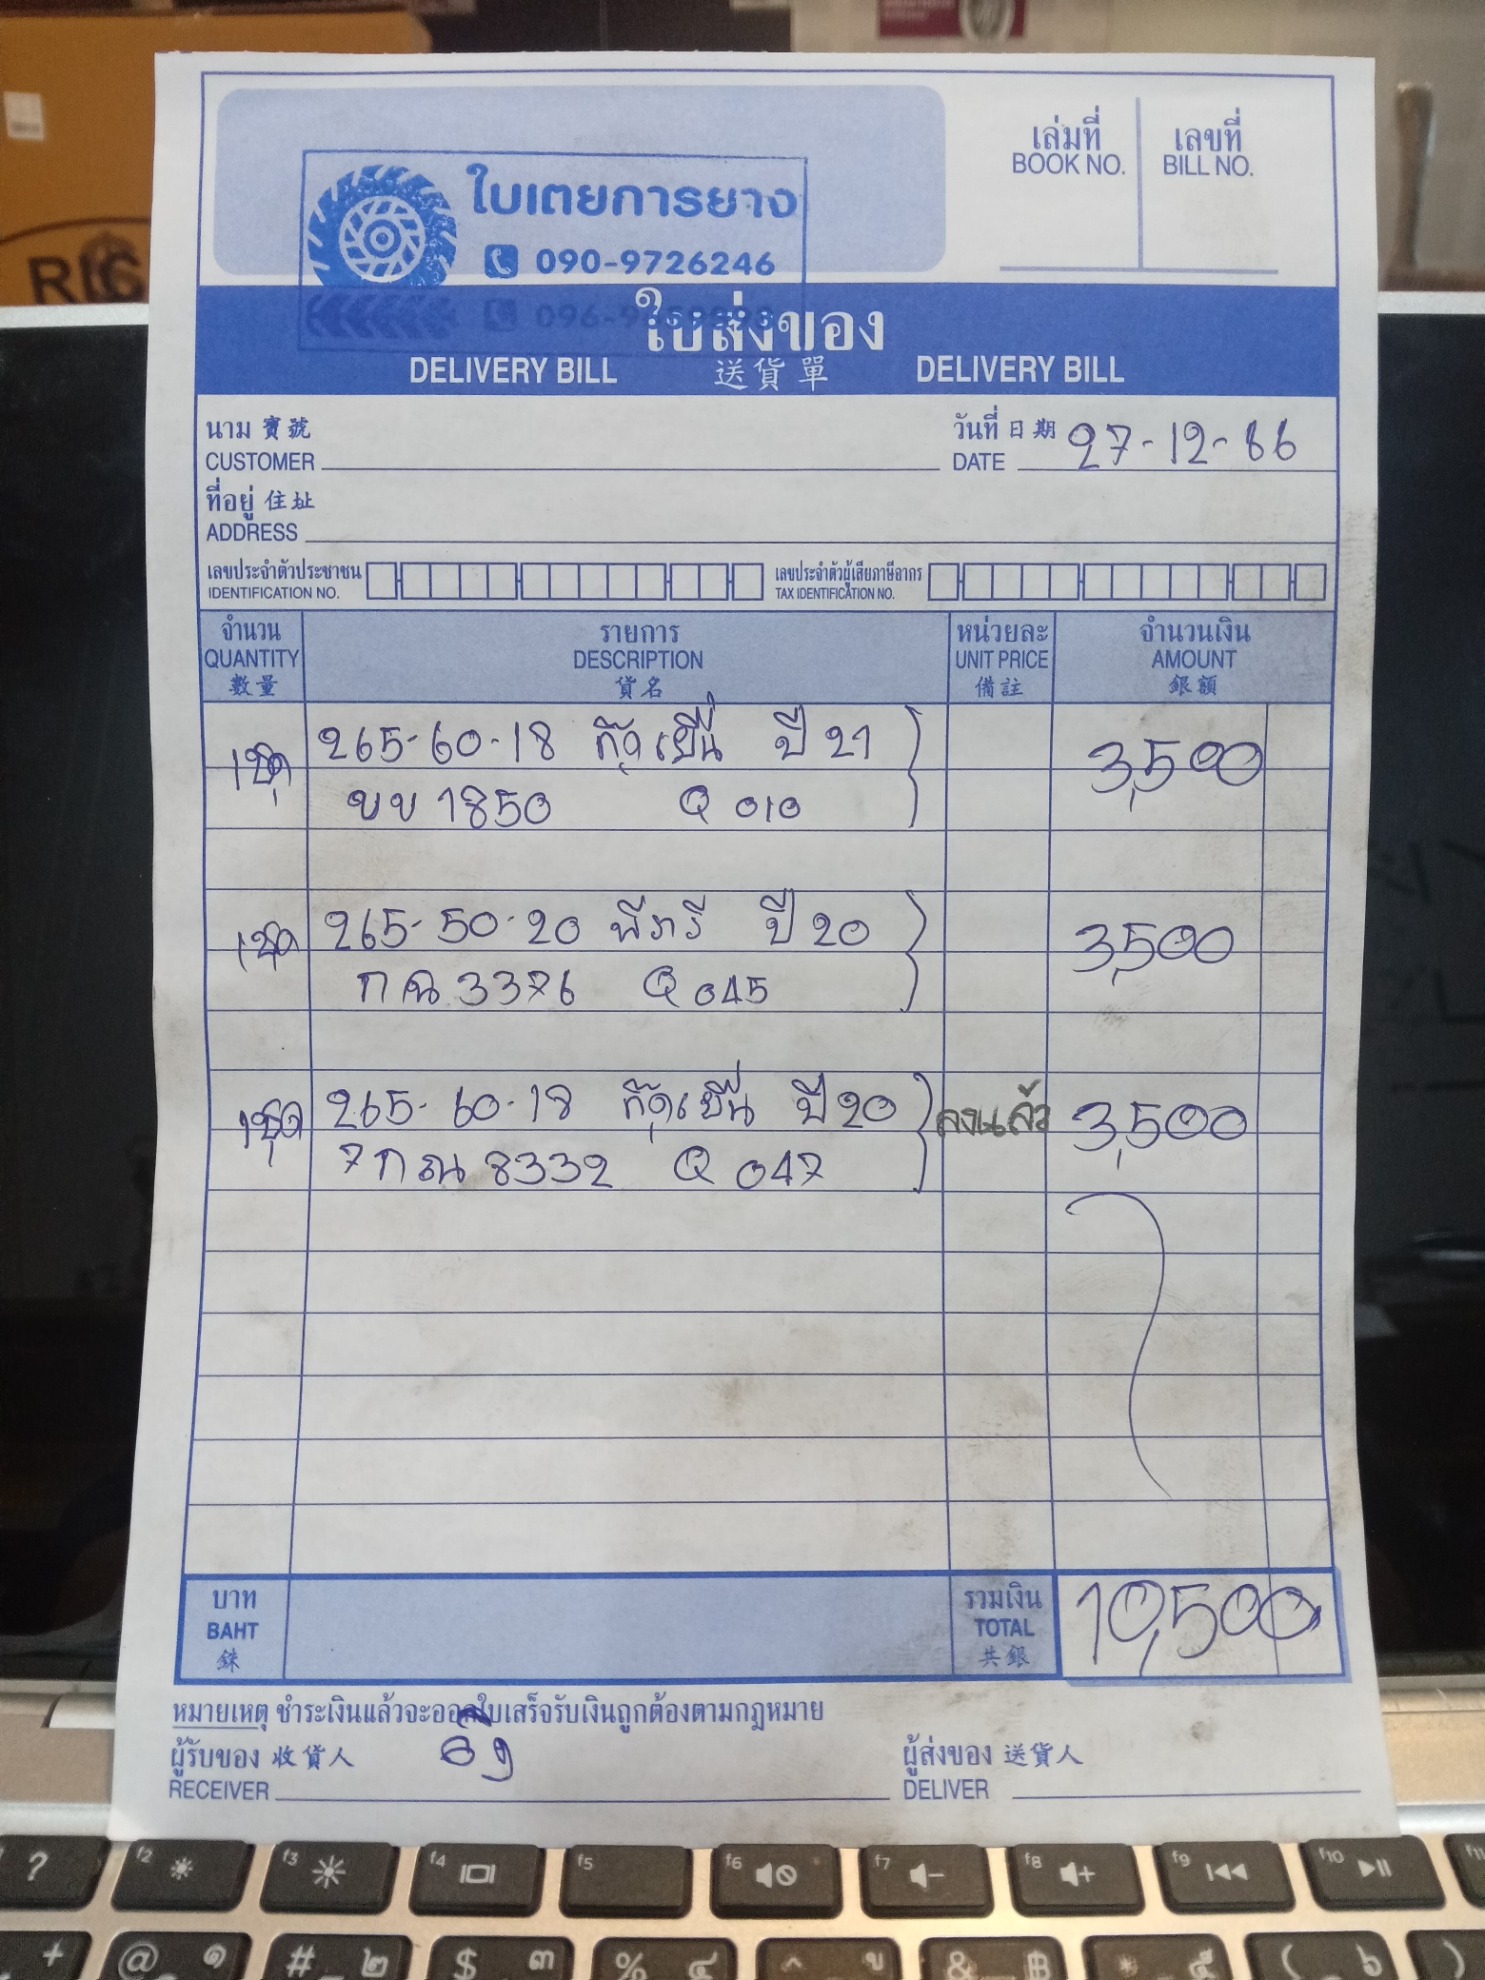 เล่มที่ เลขที่
BOOK NO. BILL NO.
ใบเตยการยาง
090-9726246
ใบส่งของ
DELIVERY BILL 送貨單 DELIVERY BILL
นาม 寶號 วันที่ 日期
CUSTOMER DATE 27-12-66
ที่อยู่ 住址
ADDRESS
เลขประจำตัวประชาชน เลขประจำตัวผู้เสียภาษีอากร
IDENTIFICATION NO. TAX IDENTIFICATION NO.
จำนวน รายการ หน่วยละ จำนวนเงิน
QUANTITY DESCRIPTION UNIT PRICE AMOUNT
數量 貨名 備註 銀額
1ชุด 265-60-18 กู๊ดเยียร ปี 21 3,500
ขข 1850 Q 010
1ชุด 265-50-20 พีรารี ปี 20 3,500
กฉ 3376 Q 045
1ชุด 265-60-18 กู๊ดเยียร ปี 20 ลงแล้ว 3,500
7กณ 8332 Q 047
บาท รวมเงิน
BAHT TOTAL 10,500
銖 共銀
หมายเหตุ ชำระเงินแล้วจะออกใบเสร็จรับเงินถูกต้องตามกฎหมาย
ผู้รับของ 收貨人 ผู้ส่งของ 送貨人
RECEIVER DELIVER
RIG
?
f2 f3 f4 f5 f6 f7 f8 f9 f10 f11
+ @ ๑ # ๒ $ ๓ % ๔ ^ ข & ฿ * ๕ ( ๖ )